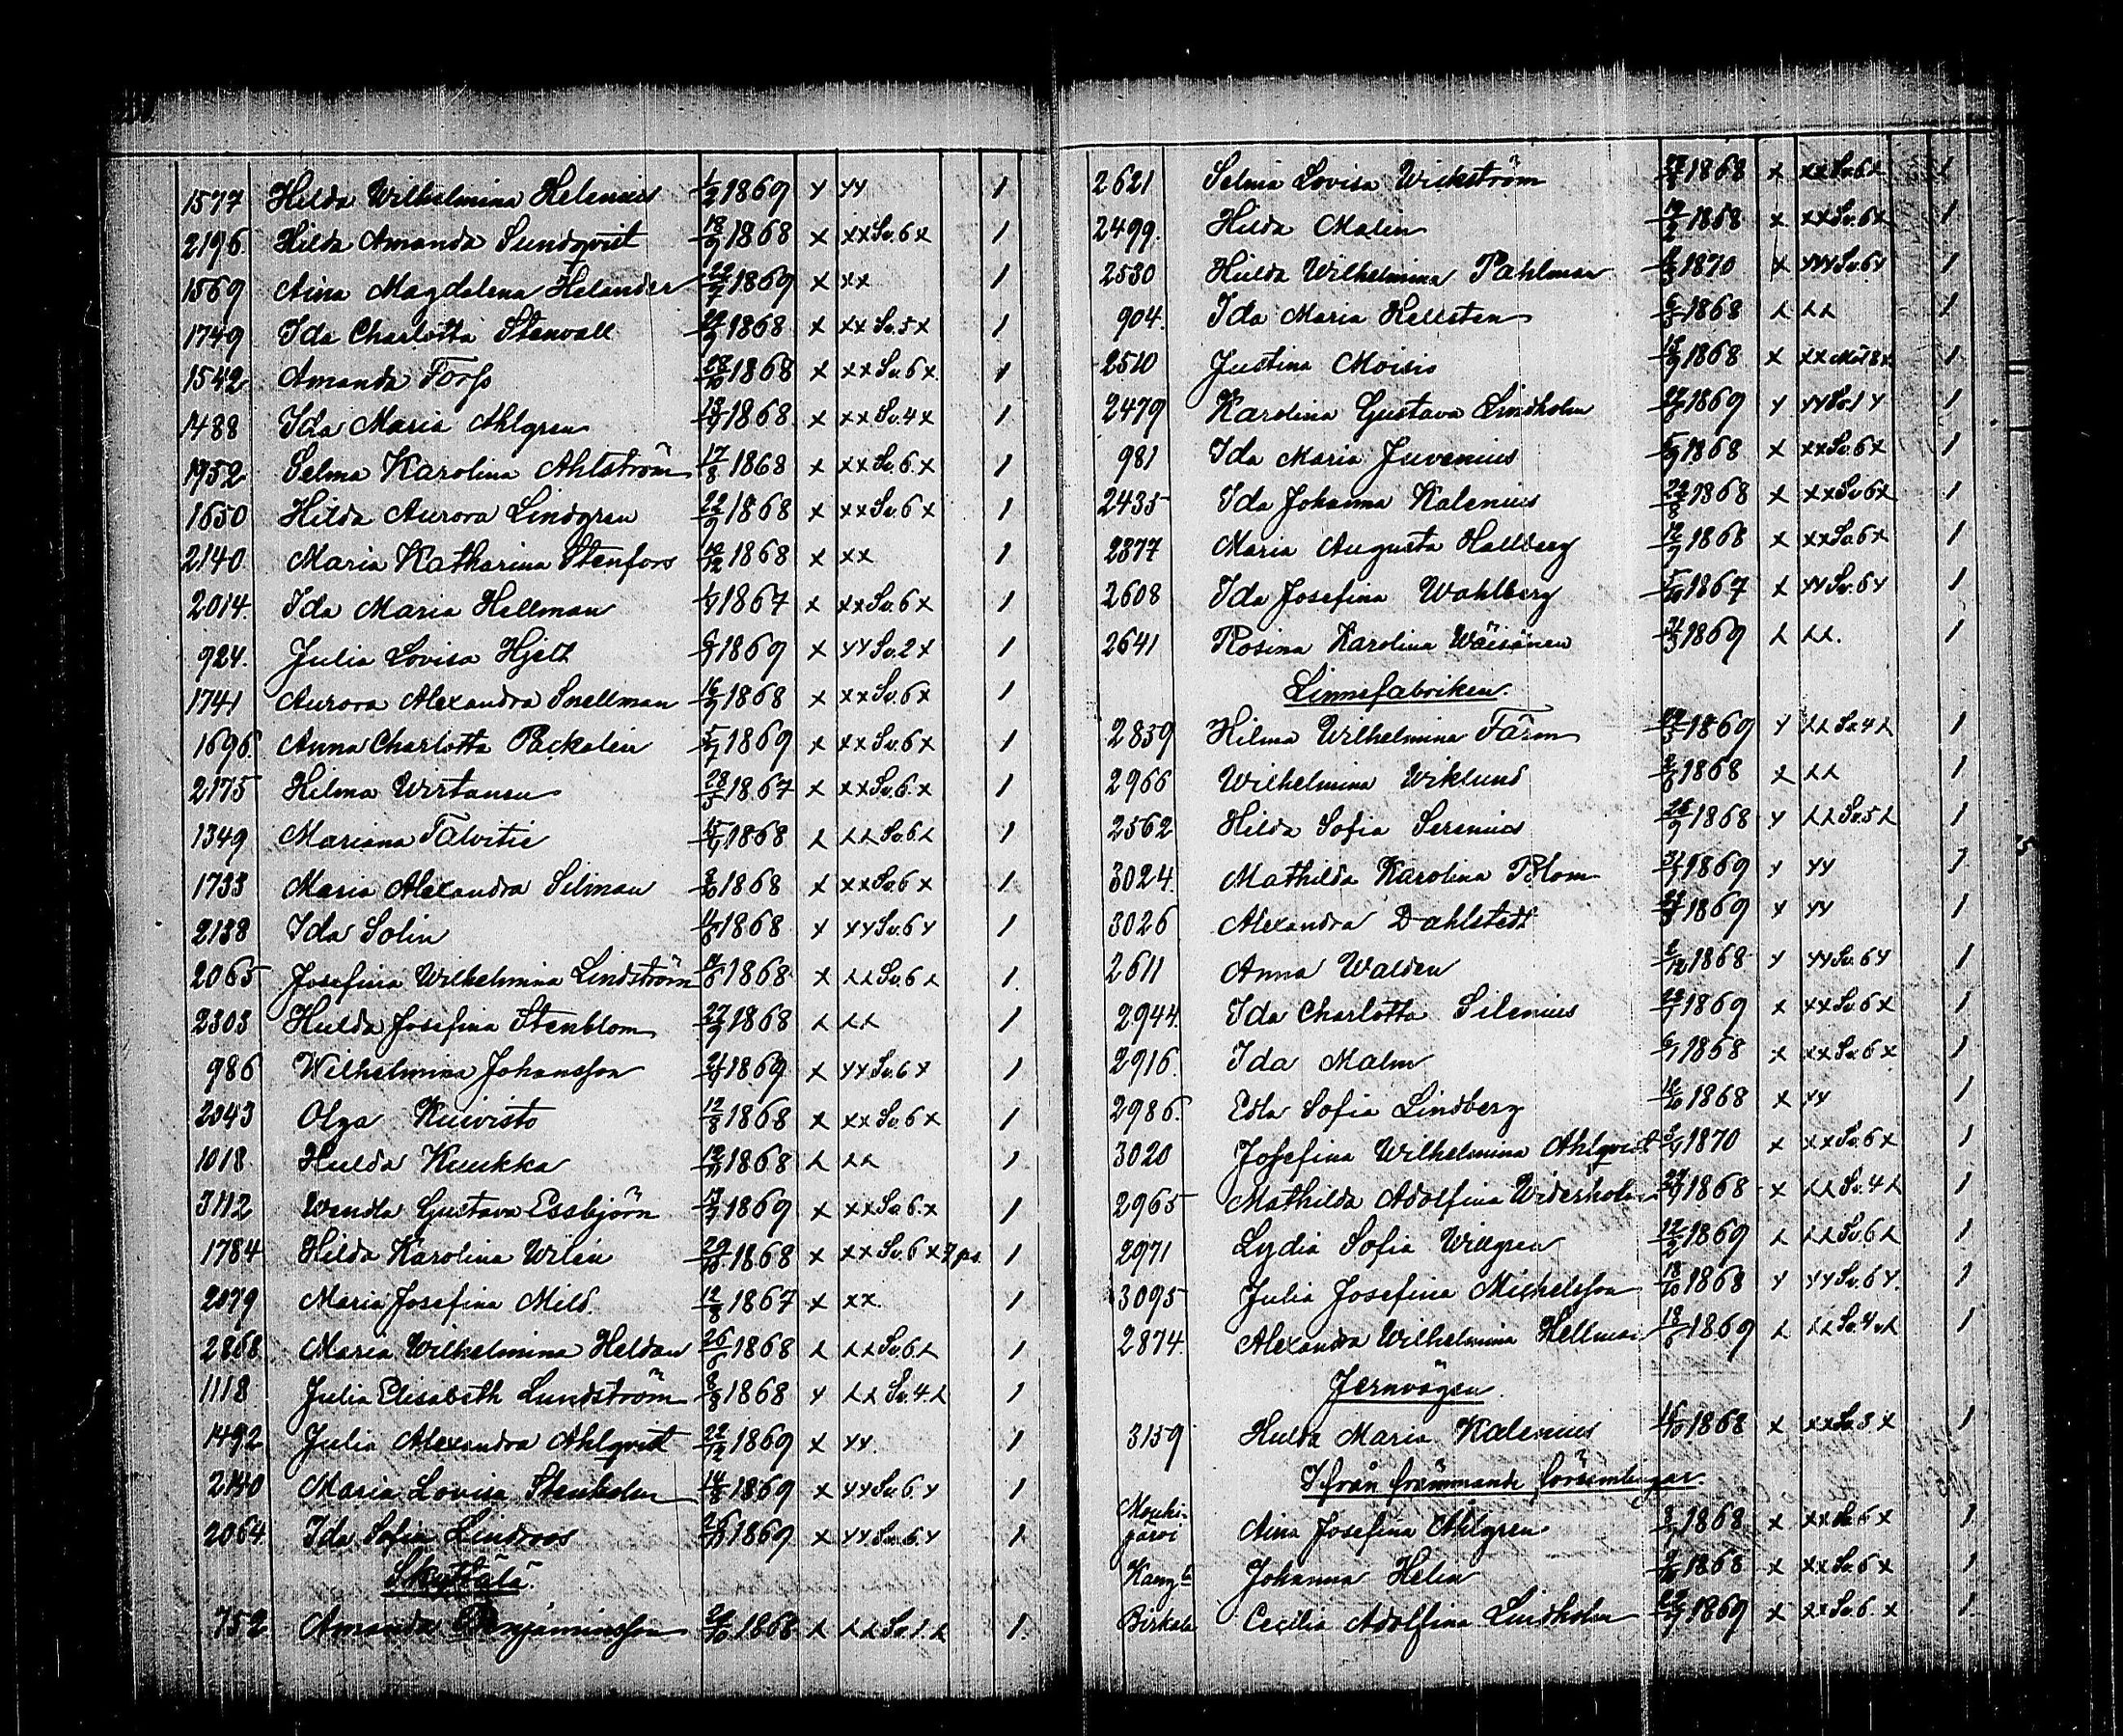 1577 Hilda Wilhelmina Helenius 1/2 1869 x xx 1
2196. Hilda Amanda Sundqvist 18/9 1868 x xx Sv. 6 x 1
1569 Aina Magdalena Helander 22/7 1869 x xx 1
1749 Ida Charlotta Stenvall 1868 x xx Sv. 5 x 1
1542 Amanda Forss 28/10 1868 x xx Sv. 6 x 1
1488 Ida Maria Ahlgren 1868 x xx Sv. 4 x 1
1952 Selma Karolina Ahlström 17/8 1868 x xx Sv. 6. x 1
1650 Hilda Aurora Lindgren 22/9 1868 x xx Sv. 6 x 1
2140 Maria Katharina Stenfors 1868 x xx 1
2014. Ida Maria Hellman 1867 x xx Sv. 6 x 1
924. Julia Lovisa Hjelt 1869 x xx Sv. 2 x 1
1741 Aurora Alexandra Snellman 16/9 1868 x xx Sv. 6 x 1
1696. Anna Charlotta Packalén 5/7 1869 x xx Sv. 6 x 1
2175 Hilma Wirtanen 28/5 1867 x xx Sv. 6. x 1
1349 Mariana Talvitie 1868 x xx Sv. 6 x 1
1733 Maria Alexandra Silman 1868 x xx Sv. 6 x 1
2138 Ida Solin 1868 x xx Sv. 6 x 1
2065 Josefina Wilhelmina Lindström 1868 x xx Sv. 6 x 1.
2303 Hulda Josefina Stenblom 27/9 1868 x xx 1
986 Wilhelmina Johansson 1869 x xx Sv. 6 x 1
2043 Olga Kuivisto 12/8 1868 x xx Sv. 6 x 1
1018. Hulda Kuukka 1868 x xx 1
3112 Wendla Gustava Essbjörn 1869 x xx Sv. 6. x 1
1784 Hilda Karolina Wilén 29/10 1868 x xx Sv. 6 x 1
2079 Maria Josefina Mild. 12/8 1867 x xx. 1
2868 Maria Wilhelmina Heldan 26/6 1868 x xx Sv. 6 x 1
1118. Julia Elisabeth Lundström 8/8 1868 x xx Sv. 4 x 1
1492 Julia Alexandra Ahlqvist 22/12 1869 x xx. 1
2140 Maria Lovisa Stenholm 14/8 1869 x xx Sv. 6. x 1
2064 Ida Sofia Lindroos 1869 x xx Sv. 6. x 1
Skyttälä.
752 Amanda Benjaminsson 1868 x xx Sv. 1. x 1.
2621 Selma Lovisa Wickström 1868 x xx Sv. 6 x 1
2499. Hilda Malin 19/2 1868 x xx Sv. 6 x 1
2530 Hulda Wilhelmina Pahlman 1870 x xxx Sv. 6 x 1
904. Ida Maria Hellsten 1868 x xx 1
2510 Justina Moisio 1868 x xx 1
2479 Karolina Gustava Lindholm 1869 x xx Sv. 1 x 1
981 Ida Maria Juvenius 5/9 1868 x xx Sv. 6 x 1
2435 Ida Johanna Kalenius 1868 x xx Sv. 6 x 1
2377 Maria Augusta Hallberg 12/9 1868 x xx Sv. 6 x 1
2608 Ida Josefina Wahlberg 5/10 1867 x xx Sv. 6 x 1
2641 Rosina Karolina Wäisänen 1869 x xx. 1
Linnefabriken.
2839 Hilma Wilhelmina Färm 1869 x xx Sv. 4 x 1
2966 Wilhelmina Wiklund 1868 x xx 1
2562 Hilda Sofia Serenius 26/9 1868 x xx Sv. 5 x 1
3024. Mathilda Karolina Blom 1869 x xx 1
3026 Alexandra Dahlstedt 1869 x xx 1
2611 Anna Walden 1868 x xx Sv. 6 x 1
2944. Ida Charlotta Silenius 1869 x xx Sv. 6 x 1
2916. Ida Malm 1868 x xx Sv. 6 x 1
2986. Edla Sofia Lindberg 1868 x xx 1
3020 Josefina Wilhelmina Ahlqvist 1870 x xx Sv. 6 x 1
2965 Mathilda Adolfina Widerholm 1868 x xx Sv. 4 x 1
2971 Lydia Sofia Willgren 12/2 1869 x xx Sv. 6 x 1
3095 Julia Josefina Michelsson 18/10 1868 x xx Sv. 6 x. 1
2874. Alexandra Wilhelmina Hellman 18/6 1869 x xx Sv. 4 x 1
Jernvägen.
3159 Hulda Maria Kalenius 1868 x xx Sv. 3 x 1
Ifrån främmande församlingar.
Mouhijärvi Aina Josefina Ahlgren 1868 x xx Sv. 6 x 1
Kang. Johanna Helin 1868 x xx Sv. 6 x 1
Birkala Cecilia Adolfina Lindholm 1869 x xx Sv. 6. x 1.